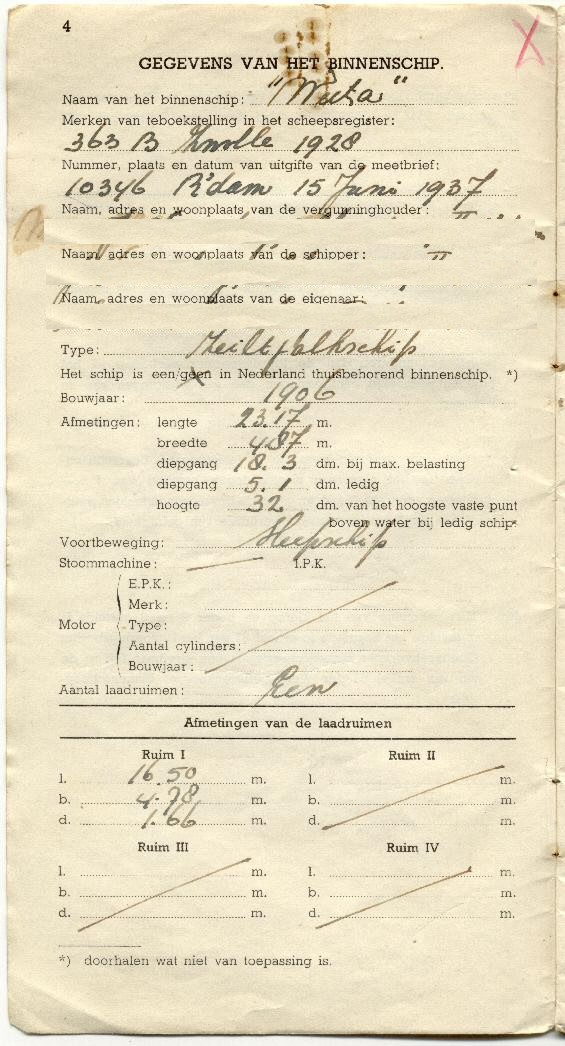 4
GEGEVENS VAN HET BINNENSCHIP.
Naam van het binnenschip:
Merken van teboekstelling in het scheepsregister:
363 B Zwolle 1928
Nummer, plaats en datum van uitgifte van de meetbrief:
10346 R'dam 15 Juni 1937
Naam, adres en woonplaats van de vergunninghouder:
Naam, adres en woonplaats van de schipper:
Naam, adres en woonplaats van de eigenaar:
Type: Zeiltjalkschip
Het schip is een/geen in Nederland thuisbehorend binnenschip. *)
Bouwjaar: 1906
Afmetingen: lengte 23.17 m.
breedte 4.87 m.
diepgang 18.3 dm. bij max. belasting
diepgang 5.1 dm. ledig
hoogte 32 dm. van het hoogste vaste punt
boven water bij ledig schip
Voortbeweging: Sleepschip
Stoommachine: I.P.K.
Motor
E.P.K.:
Merk:
Type:
Aantal cylinders:
Bouwjaar:
Aantal laadruimen: Een
Afmetingen van de laadruimen
Ruim I Ruim II
l. 16.50 m. l. m.
b. 4.78 m. b. m.
d. 1.66 m. d. m.
Ruim III Ruim IV
l. m. l. m.
b. m. b. m.
d. m. d. m.
*) doorhalen wat niet van toepassing is.